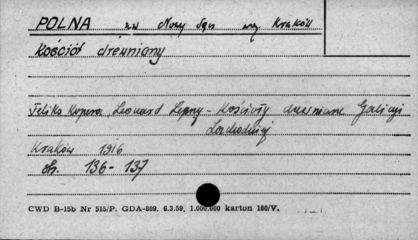 POLNA pow Nowy Sącz woj. Kraków
Kościół drewniany
Feliks Kopera, Leonard Lepszy - Kościoły drewniane Galicji
Zachodniej
Kraków 1916
str. 136-137
CWD B-15b Nr 515/P. GDA-809. 6.3.59, 1.000.000 karton 180/V.